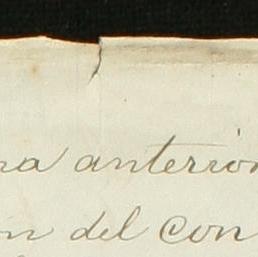 na anterior
ón del con